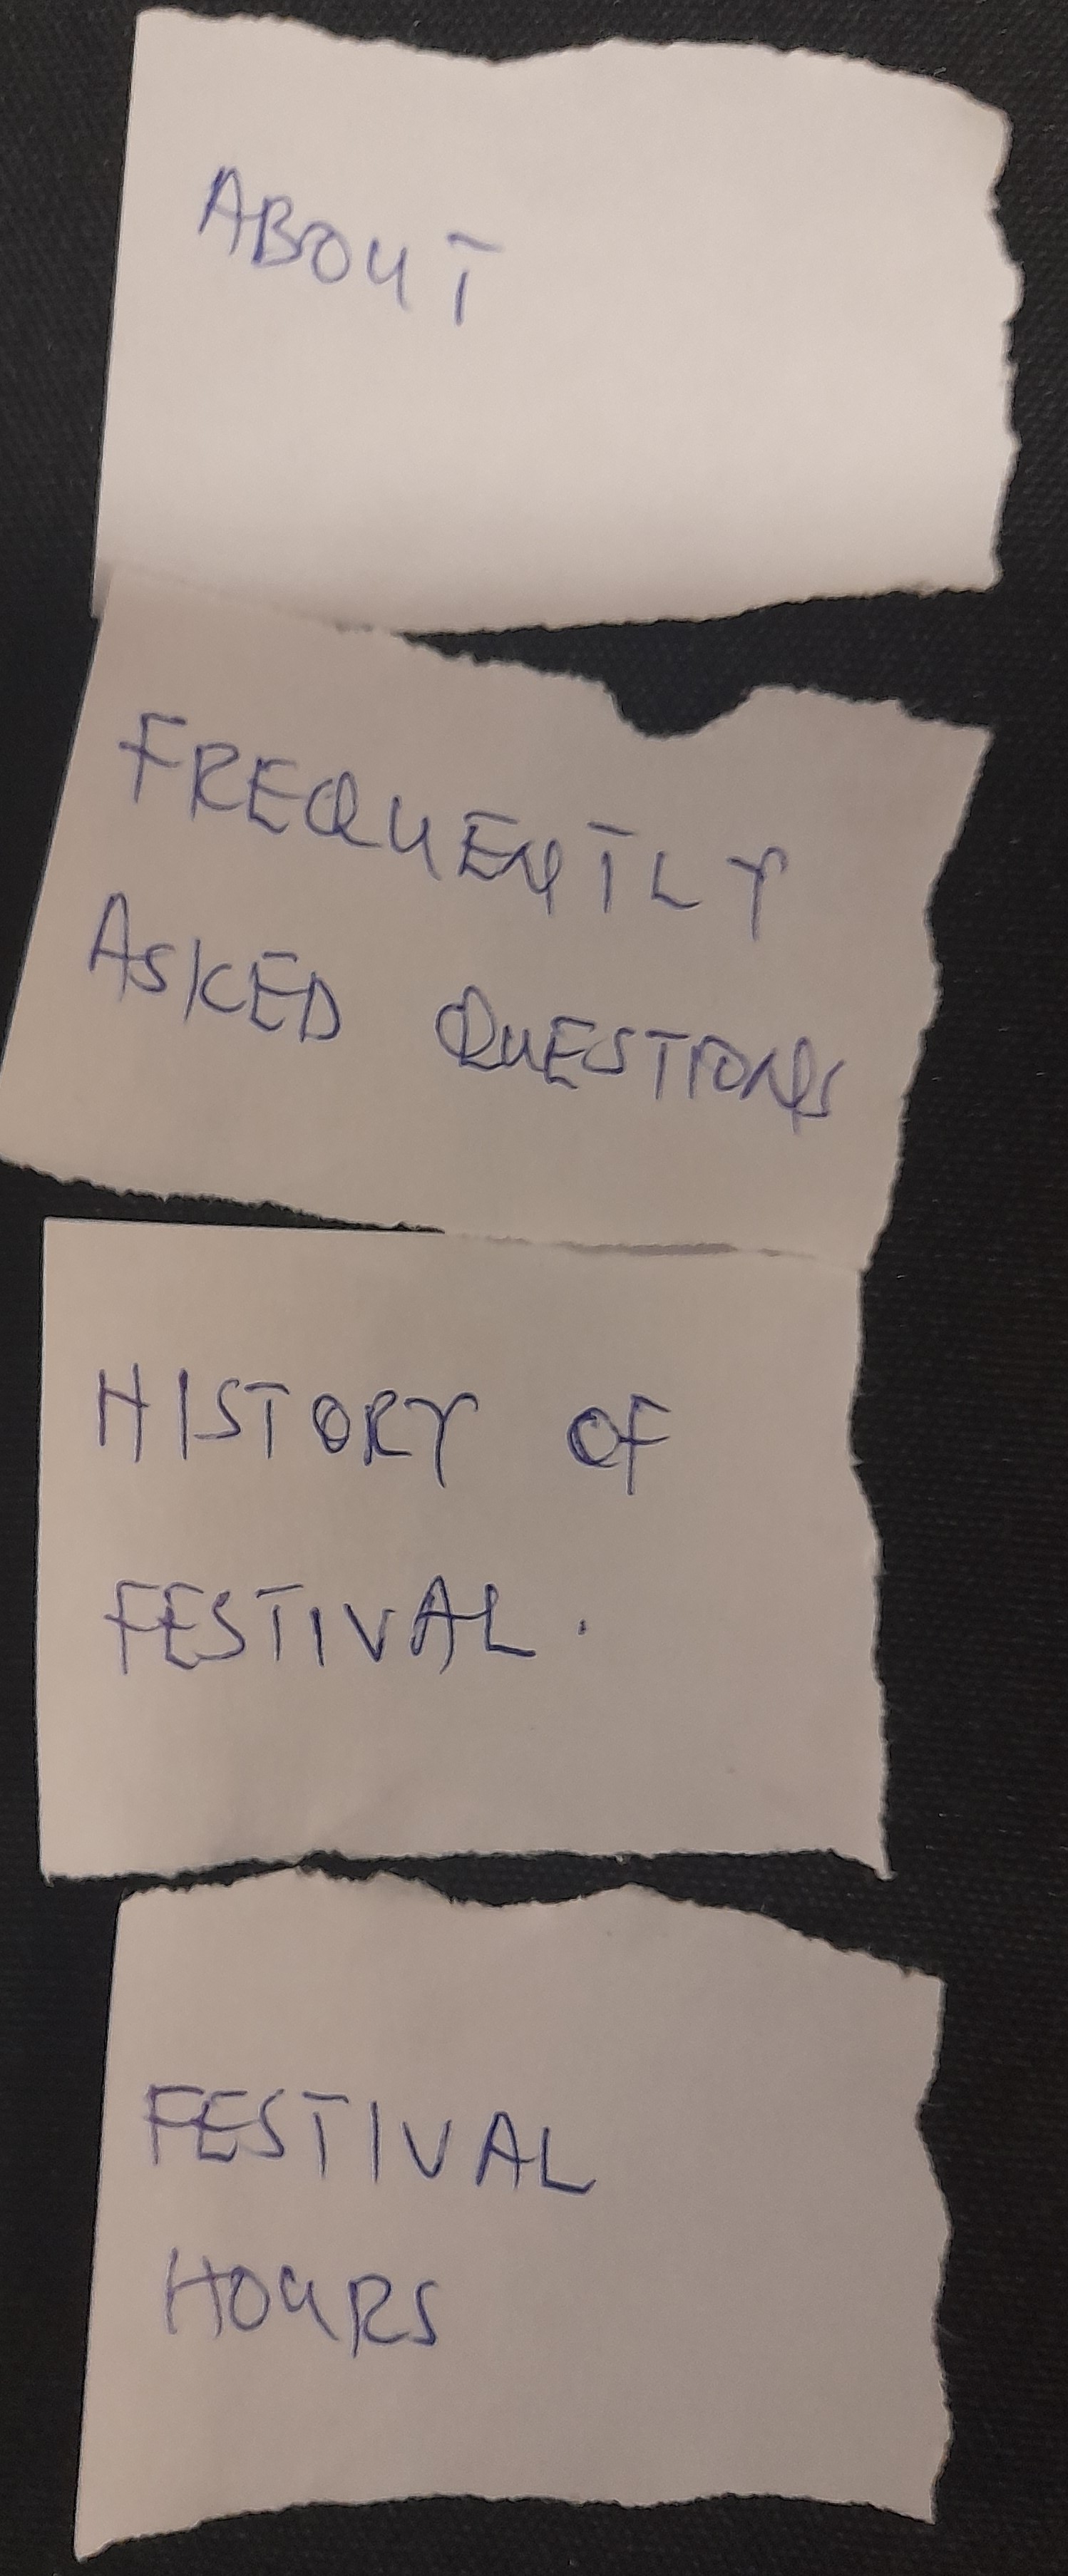 ABOUT
FREQUENTLY
ASKED QUESTIONS
HISTORY OF
FESTIVAL.
FESTIVAL
HOURS